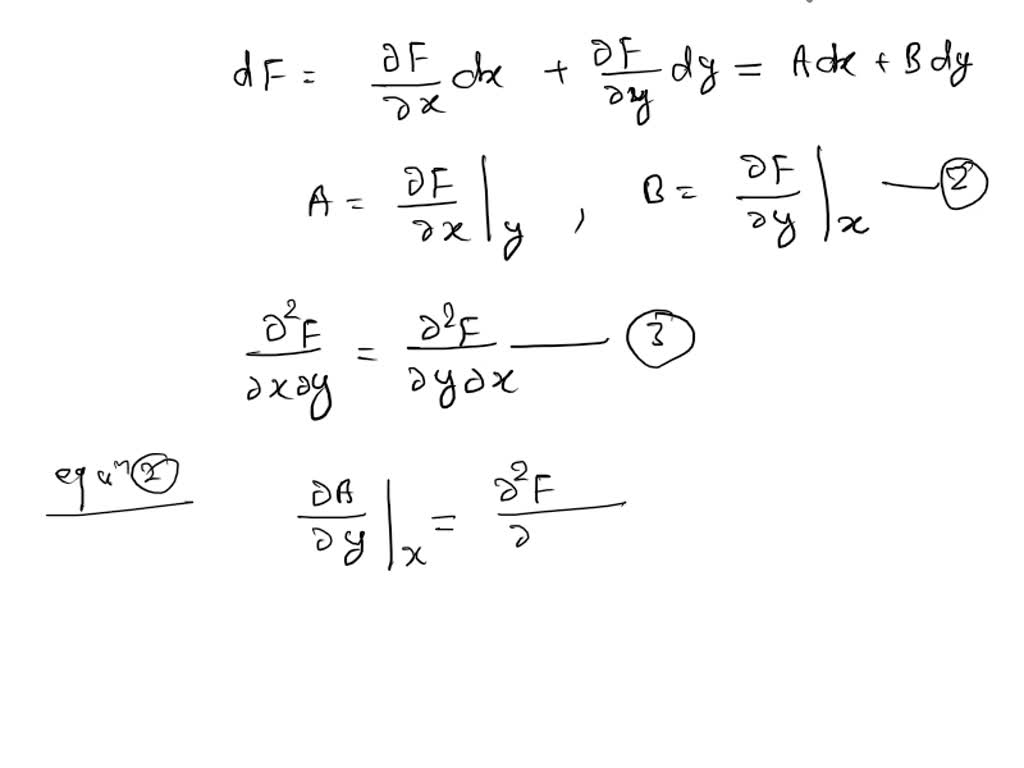 dF = ∂F/∂x dx + ∂F/∂y dy = Adx + Bdy
A = ∂F/∂x |y , B = ∂F/∂y |x — ②
∂²F/∂x∂y = ∂²F/∂y∂x — ③
equⁿ ② ∂A/∂y |x = ∂²F/∂